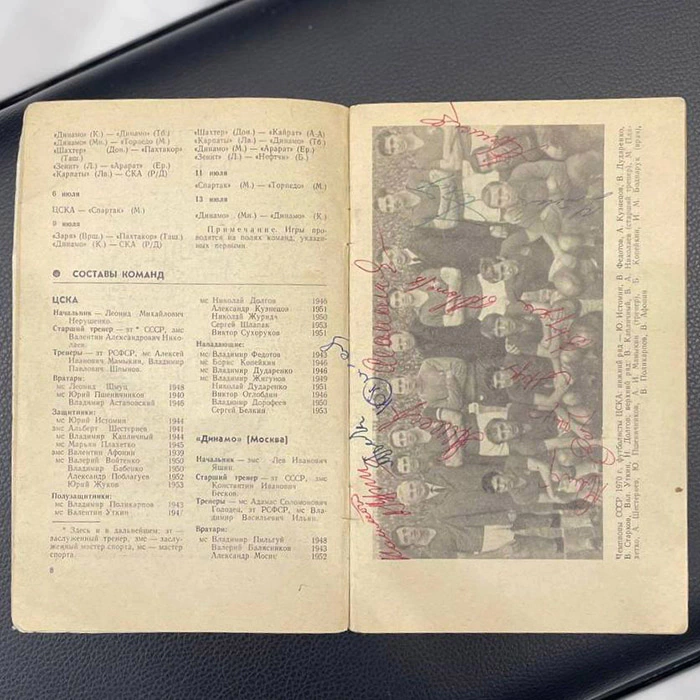 «Динамо» (К.) — «Динамо» (Тб.)
«Динамо» (Мн.) — «Торпедо» (М.)
«Шахтер» (Дон.) — «Пахтакор» (Таш.)
«Зенит» (Л.) — «Арарат» (Ер.)
«Карпаты» (Лв.) — СКА (Р/Д)
6 июля
ЦСКА — «Спартак» (М.)
9 июля
«Заря» (Врш.) — «Пахтакор» (Таш.)
«Динамо» (К.) — СКА (Р/Д)
«Шахтер» (Дон.) — «Кайрат» (А-А)
«Карпаты» (Лв.) — «Динамо» (Тб.)
«Динамо» (М.) — «Арарат» (Ер.)
«Зенит» (Л.) — «Нефтчи» (Б.)
11 июля
«Спартак» (М.) — «Торпедо» (М.)
13 июля
«Динамо» (Мн.) — «Динамо» (К.)
Примечание. Игры про-
водятся на полях команд, указан-
ных первыми.
СОСТАВЫ КОМАНД
ЦСКА
Начальник — Леонид Михайлович
Нерушенко.
Старший тренер — зт * СССР, змс
Валентин Александрович Нико-
лаев.
Тренеры — зт РСФСР, мс Алексей
Иванович Мамыкин, Владимир
Павлович Шлымов.
Вратари:
мс Леонид Шмуц 1948
мс Юрий Пшеничников 1940
Владимир Астаповский 1946
Защитники:
мс Юрий Истомин 1944
змс Альберт Шестернев 1941
мс Владимир Капличный 1944
мс Марьян Плахетко 1945
змс Валентин Афонин 1939
мс Валерий Войтенко 1950
Владимир Бабенко 1950
Александр Поблагуев 1952
Юрий Жуков 1953
Полузащитники:
мс Владимир Поликарпов 1943
мс Валентин Уткин 194
* Здесь и в дальнейшем: зт —
заслуженный тренер, змс — заслу-
женный мастер спорта, мс — мастер
спорта.
8
мс Николай Долгов 1946
Александр Кузнецов 1951
Николай Журидч 1950
Сергей Шлапак 1953
Виктор Сухоруков 1951
Нападающие:
мс Владимир Федотов 1943
мс Борис Копейкин 1946
мс Владимир Дударенко 1946
мс Владимир Жигунов 1949
Николай Ильин 1951
Виктор Оглоблин 1946
Владимир Дорофеев 1950
Сергей Белкин 1953
«Динамо» (Москва)
Начальник — змс Лев Иванович
Яшин.
Старший тренер — зт СССР, змс
Константин Иванович
Бесков.
Тренеры — мс Адамас Соломонович
Голодец, зт РСФСР, мс Вла-
димир Васильевич Ильин.
Вратари:
мс Владимир Пильгуй 1948
Валерий Балясников 1943
Александр Мосин 1952
Чемпионы СССР 1970 г. футболисты ЦСКА: нижний ряд — Ю. Истомин, В. Федотов, А. Кузнецов, В. Дударенко,
В. Старков, Вал. Уткин, Н. Долгов; верхний ряд: В. Капличный, В. А. Николаев (старший тренер), М. Пла-
хетко, А. Шестернев, Ю. Пшеничников, А. И. Мамыкин (тренер), Б. Копейкин, И. М. Боднарук (врач),
В. Поликарпов, В. Афонин